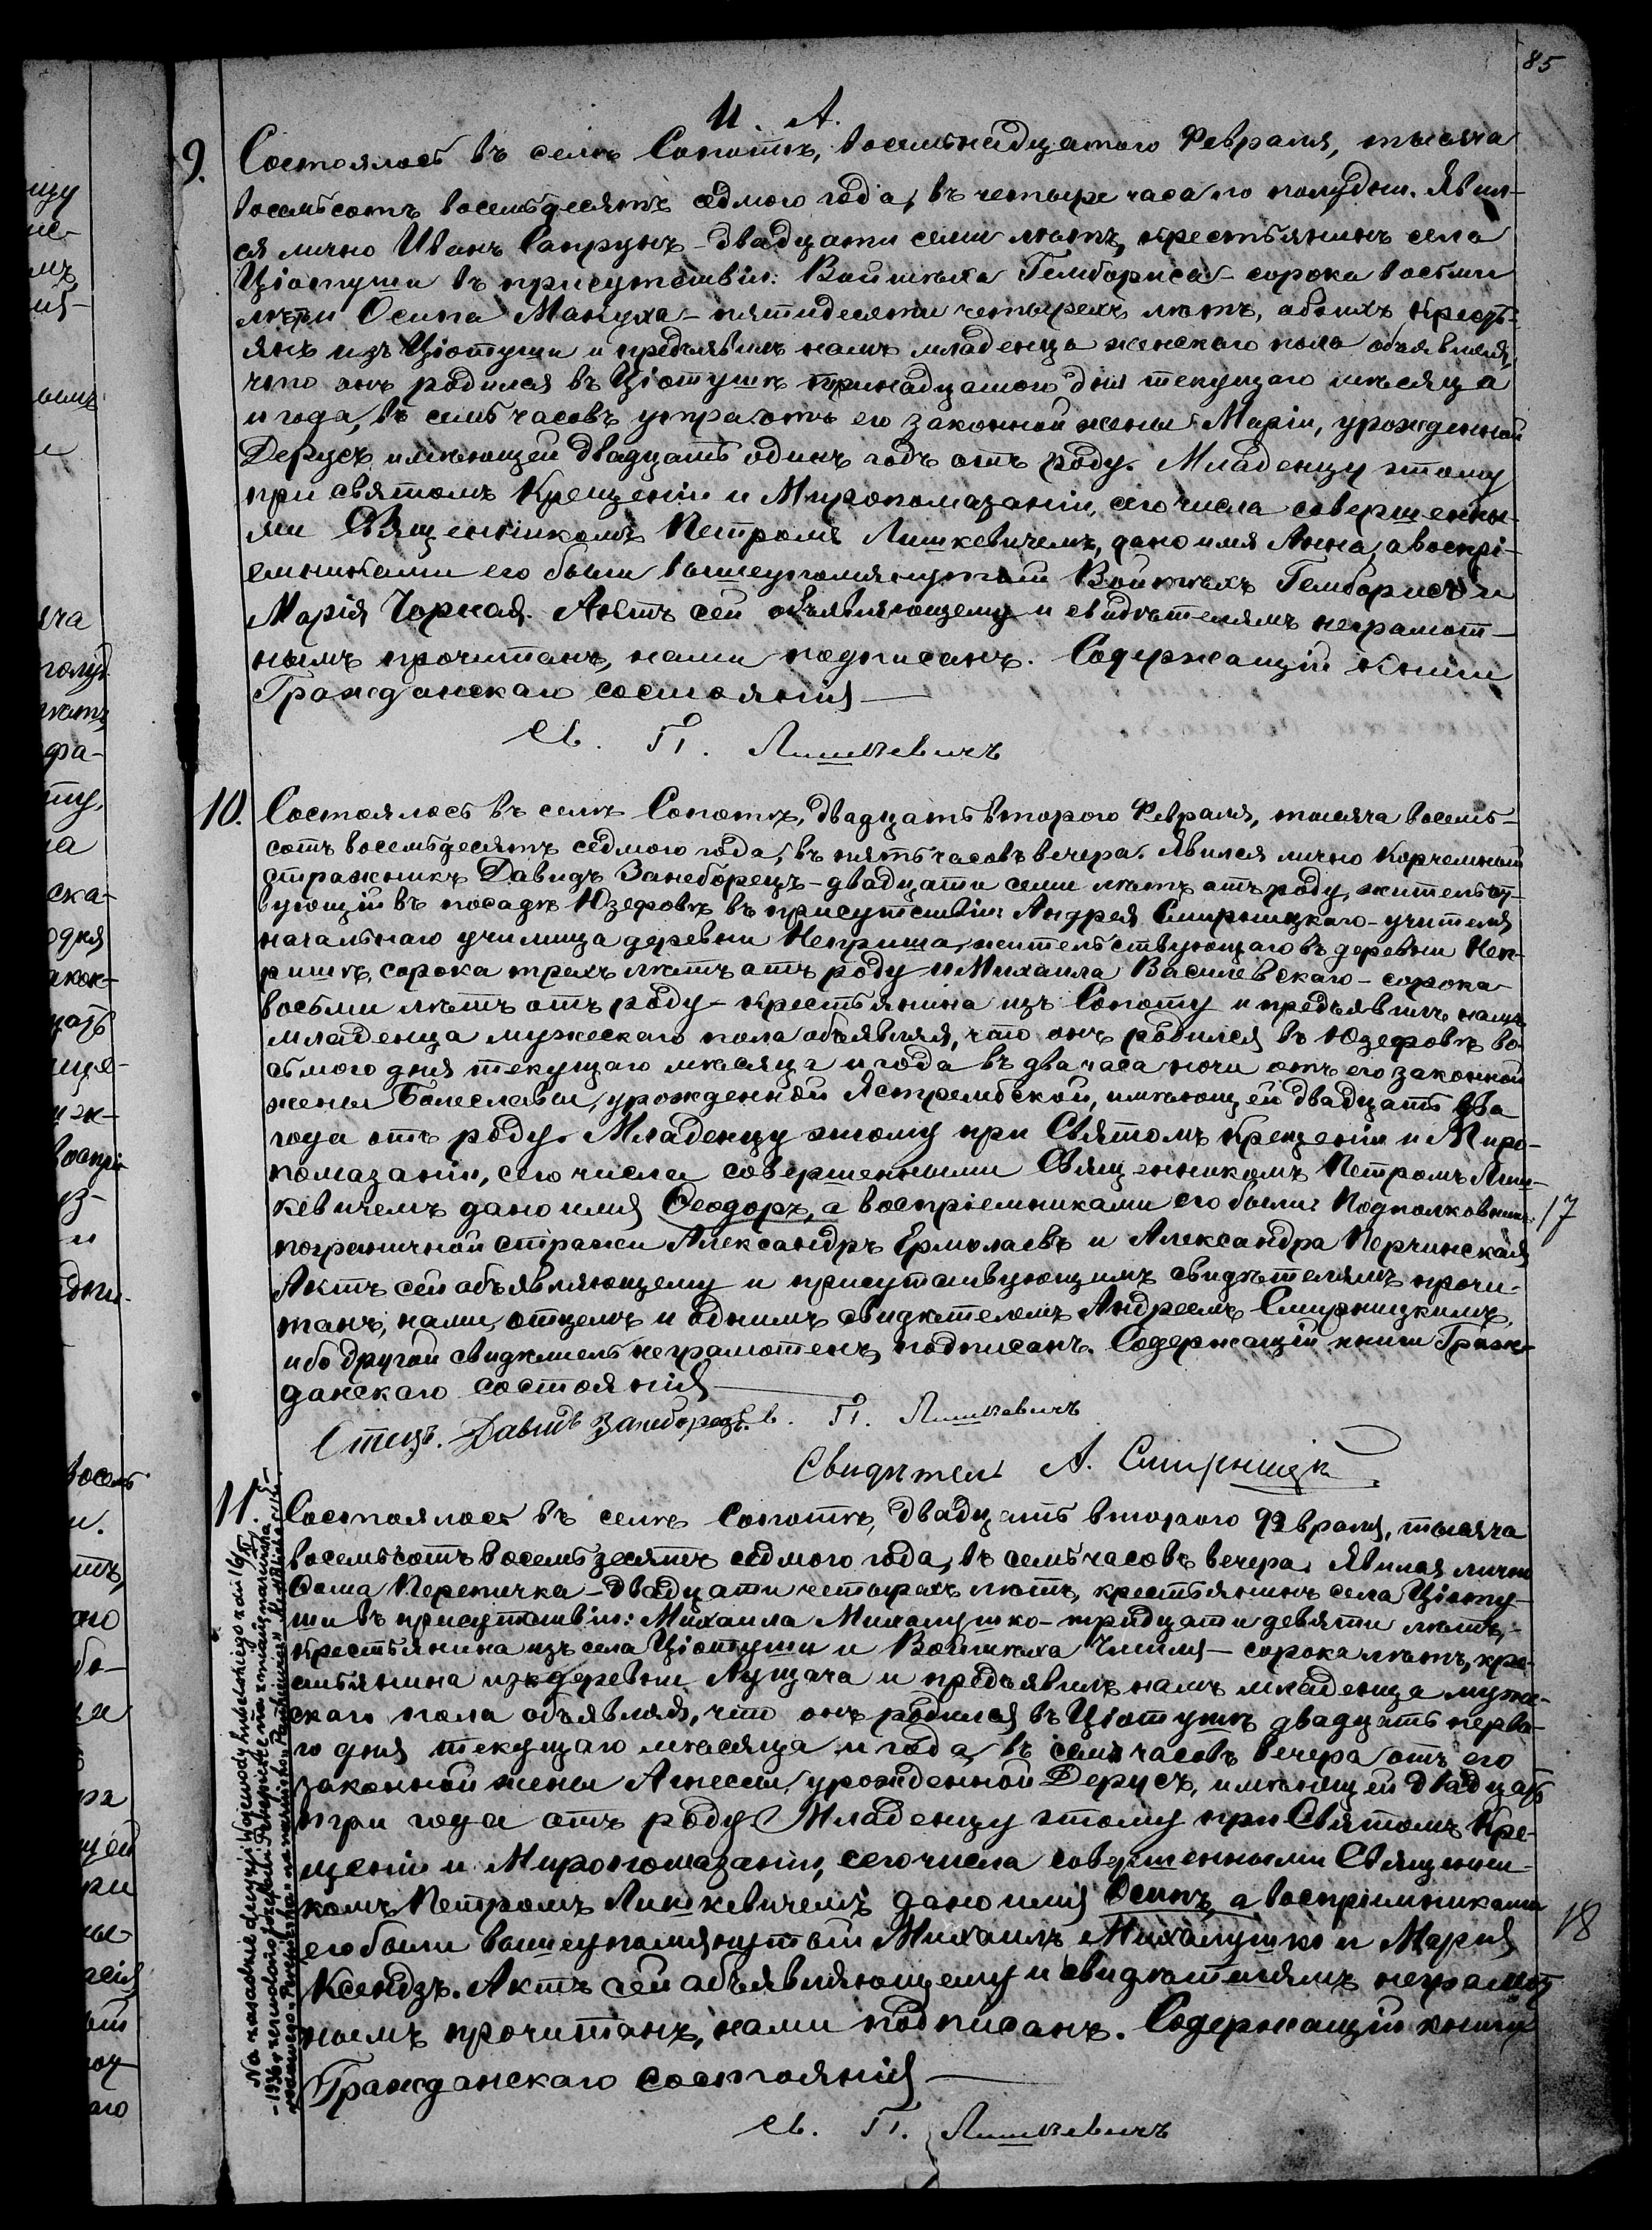 85
И. А.
9. Состоялось въ селѣ Сопотѣ, восемьнадцатого Февраля, тысяча
восемьсотъ восемьдесятъ седмого года, въ четыре часа по полудни. Явил-
ся лично Иванъ Сапрунъ - двадцати семи лѣтъ, крестьянинъ села
Ціотуши въ присутствіи: Войтѣха Гембориса - сорока восьми
лѣтъ и Осипа Макуха - пятидесяти четырехъ лѣтъ, обоихъ крестъ-
янъ изъ Ціотуши и предъявилъ намъ младенца женскаго пола объявляя,
что онъ родился въ Ціотушѣ тринадцатого дня текущаго мѣсяца
и года, въ семь часовъ утра отъ его законной жены Маріи, урожденной
Дерусъ имѣющей двадцать одинъ годъ отъ роду. Младенцу этому
при святомъ Крещеніи и Миропомазаніи, сего числа совершенны-
ми Священникомъ Петромъ Лишкевичемъ, дано имя Анна, а воспрі-
емниками его были вышеупомянутый Войтѣхъ Гемборисъ и
Марія Чорная. Актъ сей объявляющему и свидѣтелямъ неграмот-
нымъ прочитанъ, нами подписанъ. Содержащій книги
Гражданскаго состоянія
Св. П. Лишкевичъ
10. Состоялось въ селѣ Сопотѣ, двадцать второго Февраля, тысяча восемь-
сотъ восемьдесятъ седмого года, въ пять часовъ вечера. Явился лично Корчемный
стражникъ Давидъ Занеборецъ - двадцати семи лѣтъ отъ роду, жительст-
вующій въ посадѣ Юзефовѣ въ присутствіи: Андрея Смирницкаго - учителя
начальнаго училища деревни Неприша, жительствующаго въ деревни Неп-
ришѣ, сорока трехъ лѣтъ отъ роду и Михаила Василевскаго - сорока
восьми лѣтъ отъ роду - крестьянина изъ Сопоту и предъявилъ намъ
младенца мужескаго пола объявляя, что онъ родился въ Юзефовѣ во-
сьмого дня текущаго мѣсяца и года въ два часа ночи отъ его законной
жены Болеславы, урожденной Ястрембской, имѣющей двадцать два
года отъ роду. Младенцу этому при Святомъ Крещеніи и Миро-
помазаніи, сего числа совершенными Священникомъ Петромъ Лиш-
кевичемъ дано имя Ѳеодоръ, а воспріемниками его были: Подполковникъ 17
пограничной стражи Александръ Ермолаевъ и Александра Перчинская
Актъ сей объявляющему и присутствующимъ свидѣтелямъ прочи-
танъ, нами, отцемъ и однимъ свидѣтелемъ Андреемъ Смирницкимъ,
ибо другой свидѣтель неграмотенъ, подписанъ. Содержащій книги Граж-
данскаго состоянія
Св. П. Лишкевичъ
Отецъ. Давидъ Занеборецъ.
Свидѣтель А. Смирницкі
11. Состоялось въ селѣ Сопотѣ, двадцать второго Февраля, тысяча
восемьсотъ восемьдесятъ седмого года, въ семь часовъ вечера. Явился лично
Ѳома Перепичка - двадцати четырехъ лѣтъ, крестьянинъ села Ціоту-
ши въ присутствіи: Михаила Михалушко - тридцати девяти лѣтъ,
крестьянина изъ села Ціотуши и Войтѣха Чмиля - сорока лѣтъ, кре-
стьянина изъ деревни Лущача и предъявилъ намъ младенца муже-
скаго пола объявляя, что онъ родился въ Ціотушѣ двадцать перва-
го дня текущаго мѣсяца и года въ семь часовъ вечера отъ его
законной жены Агнесы, урожденной Дерусъ, имѣющей двадцать
три года отъ роду. Младенцу этому при Святомъ Кре-
щеніи и Миропомазаніи, сего числа совершенными Священни-
комъ Петромъ Лишкевичемъ дано имя Осипъ, а воспріемниками 18
его были вышеупомянутый Михаилъ Михалушко и Марія
Ксендзъ. Актъ сей объявляющему и свидѣтелямъ неграмот-
нымъ прочитанъ, нами подписанъ. Содержащій книги
Гражданскаго состоянія
Св. П. Лишкевичъ
Na zasadzie decyzji Wojewody Lubelskiego z dn 16/